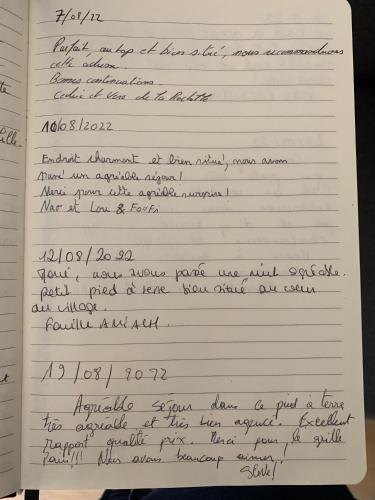 7/08/22
Parfait, au top et bien situé, nous recommandons
cette adresse.
Bonnes continuations.
Cedric et Vero de la Rochelle
10/08/2022
Endroit charment et bien situé, nous avon
passé un agréable séjour!
Merci pour cette agréable surprise!
Nao et Lou & FouFi
12/08/2022
nous avons passé une nuit agréable.
Petit pied à terre bien situé au coeur
du village.
Famille
19/08/2022
Agréable séjour dans ce pied à terre
très agréable et très bien agencé. Excellent
rapport qualité prix. Merci pour le grille
Pain!!! Nous avons beaucoup aimer!